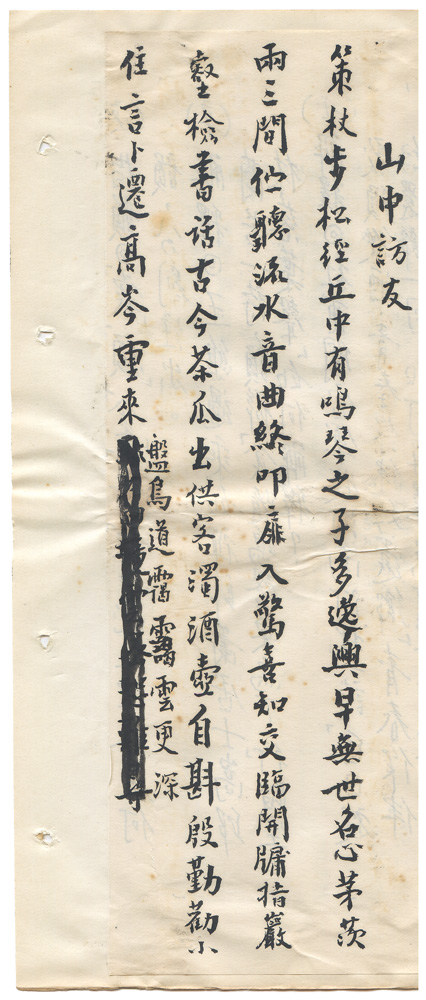 山中訪友
策杖步松徑丘中有鳴琴之子多逸興早無世名心茅茨
兩三間但聽流水音曲終叩扉入驚喜知交臨開牖指巖
壑檢書話古今茶瓜出供客濁酒壺自斟殷勤勸小
住言卜遷高岑重來盤鳥道靄靄雲更深